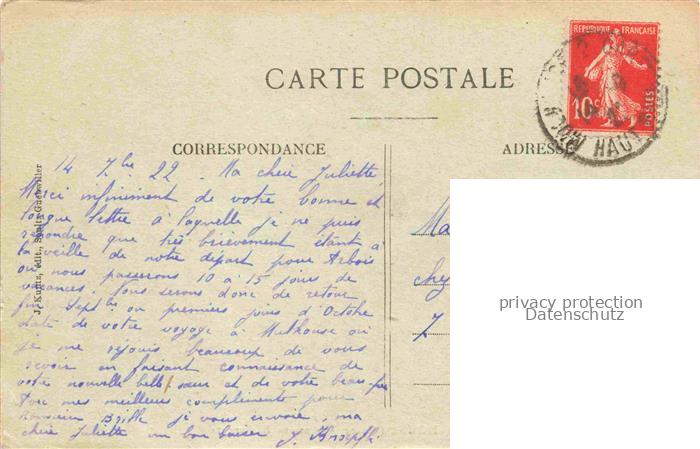 REPUBLIQUE FRANÇAISE
10c
POSTES
HAUT
CARTE POSTALE
CORRESPONDANCE
ADRESSE
J. Kuntz, édit., Soultz-Guebwiller
14 7bre 22. Ma chère Juliette,
Merci infiniment de votre bonne et
longue lettre à laquelle je ne puis
répondre que très brièvement étant à
la veille de notre départ pour Arbois
où nous passerons 10 à 15 jours de
vacances. Nous serons donc de retour
fin Septbre ou premiers jours d'Octobre
date de votre voyage à Mulhouse où
je me réjouis beaucoup de vous
revoir en faisant connaissance de
votre nouvelle belle sœur et de votre beau père
mes meilleurs compliments pour
je vous envoie, ma
chère Juliette un bon baiser
Ma
chez
7
privacy protection
Datenschutz